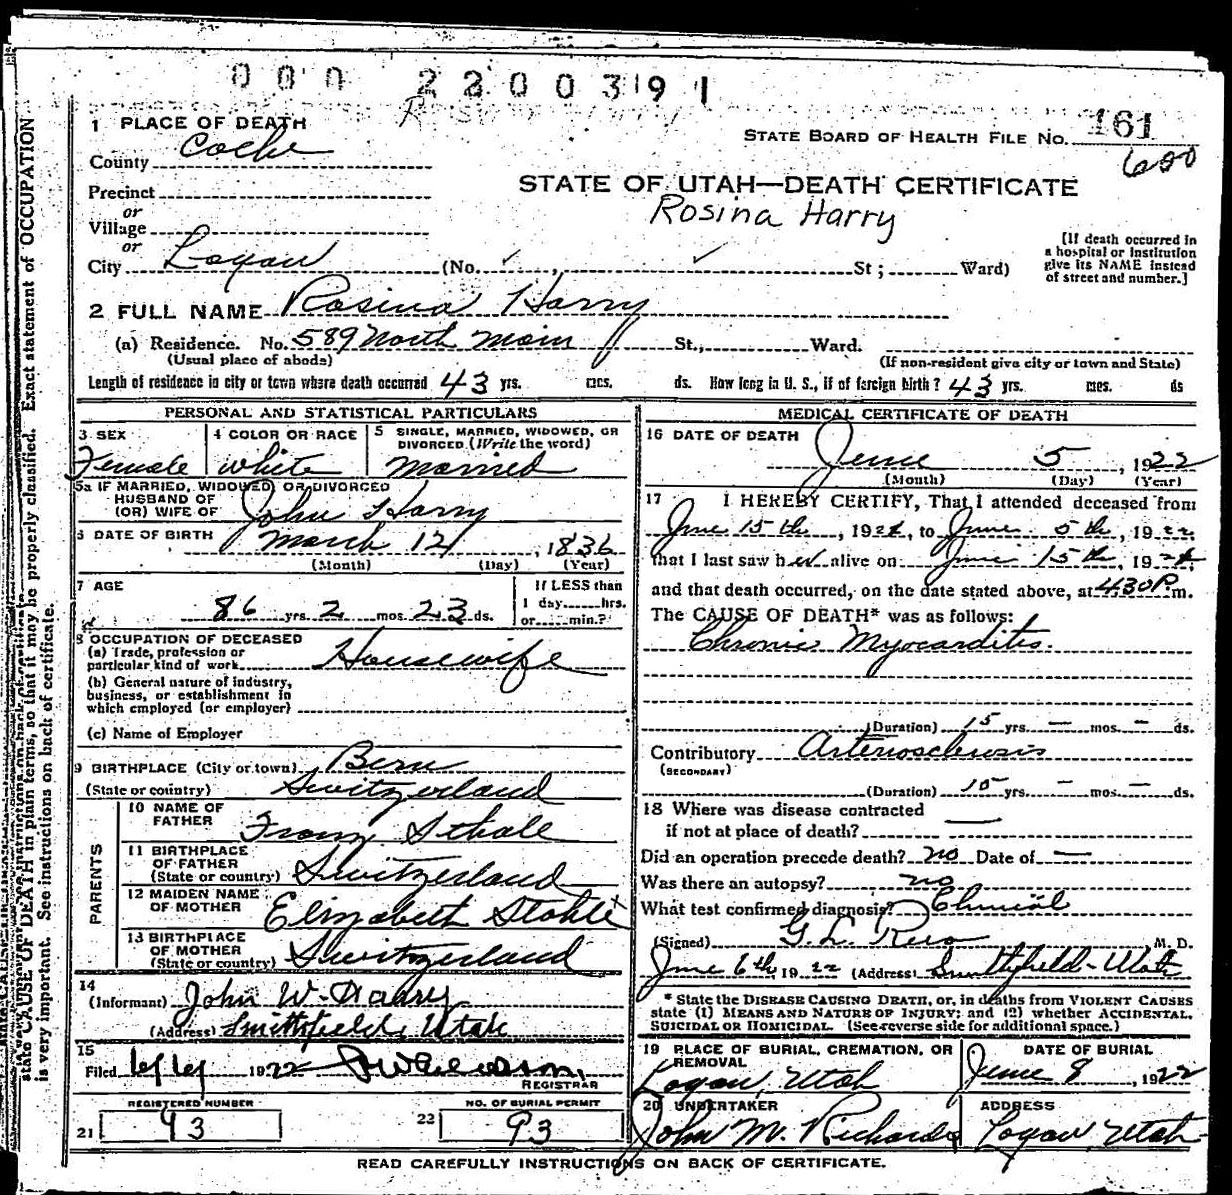 000 2200391
1 PLACE OF DEATH
STATE BOARD OF HEALTH FILE No. 161
600
County Cache
STATE OF UTAH—DEATH CERTIFICATE
Rosina Harry
Precinct
or
Village
or
City Logan (No. St; Ward)
[If death occurred in
a hospital or institution
give its NAME instead
of street and number.]
2 FULL NAME Rosina Harry
(a) Residence. No. 589 North Main St., Ward.
(Usual place of abode) (If non-resident give city or town and State)
Length of residence in city or town where death occurred 43 yrs. mos. ds. How long in U. S., if of foreign birth? 43 yrs. mos. ds
PERSONAL AND STATISTICAL PARTICULARS
3 SEX Female
4 COLOR OR RACE white
5 SINGLE, MARRIED, WIDOWED, OR
DIVORCED (Write the word)
married
5a IF MARRIED, WIDOWED, OR DIVORCED
HUSBAND OF
(OR) WIFE OF John Harry
6 DATE OF BIRTH March 12, 1836
(Month) (Day) (Year)
7 AGE
86 yrs. 2 mos. 23 ds.
If LESS than
1 day hrs.
or min.?
8 OCCUPATION OF DECEASED
(a) Trade, profession or
particular kind of work Housewife
(b) General nature of industry,
business, or establishment in
which employed (or employer)
(c) Name of Employer
9 BIRTHPLACE (City or town) Bern
(State or country) Switzerland
PARENTS
10 NAME OF
FATHER Franz Sthale
11 BIRTHPLACE
OF FATHER
(State or country) Switzerland
12 MAIDEN NAME
OF MOTHER Elizabeth Stahle
13 BIRTHPLACE
OF MOTHER
(State or country) Switzerland
14
(Informant) John W. Harry
(Address) Smithfield, Utah
15
Filed 6/6/ 1922
REGISTRAR
REGISTERED NUMBER
21 93
NO. OF BURIAL PERMIT
22 93
MEDICAL CERTIFICATE OF DEATH
16 DATE OF DEATH
June 5, 1922
(Month) (Day) (Year)
17 I HEREBY CERTIFY, That I attended deceased from
June 15th, 1921, to June 5th, 1922
that I last saw her alive on June 15th, 1921
and that death occurred, on the date stated above, at 4:30 P. m.
The CAUSE OF DEATH* was as follows:
Chronic Myocarditis.
(Duration) 15 yrs. — mos. — ds.
Contributory Arteriosclerosis
(SECONDARY)
(Duration) 15 yrs. — mos. — ds.
18 Where was disease contracted
if not at place of death? —
Did an operation precede death? no Date of —
Was there an autopsy? no
What test confirmed diagnosis? Clinical
(Signed) G. L. Rees M. D.
June 6th 1922 (Address) Smithfield-Utah
* State the DISEASE CAUSING DEATH, or, in deaths from VIOLENT CAUSES
state (1) MEANS AND NATURE OF INJURY; and (2) whether ACCIDENTAL,
SUICIDAL OR HOMICIDAL. (See reverse side for additional space.)
19 PLACE OF BURIAL, CREMATION, OR
REMOVAL
Logan, Utah
DATE OF BURIAL
June 8, 1922
20 UNDERTAKER
John M. Richards
ADDRESS
Logan, Utah
READ CAREFULLY INSTRUCTIONS ON BACK OF CERTIFICATE.
state CAUSE OF DEATH in plain terms, so that it may be properly classified. Exact statement of OCCUPATION
is very important. See instructions on back of certificate.